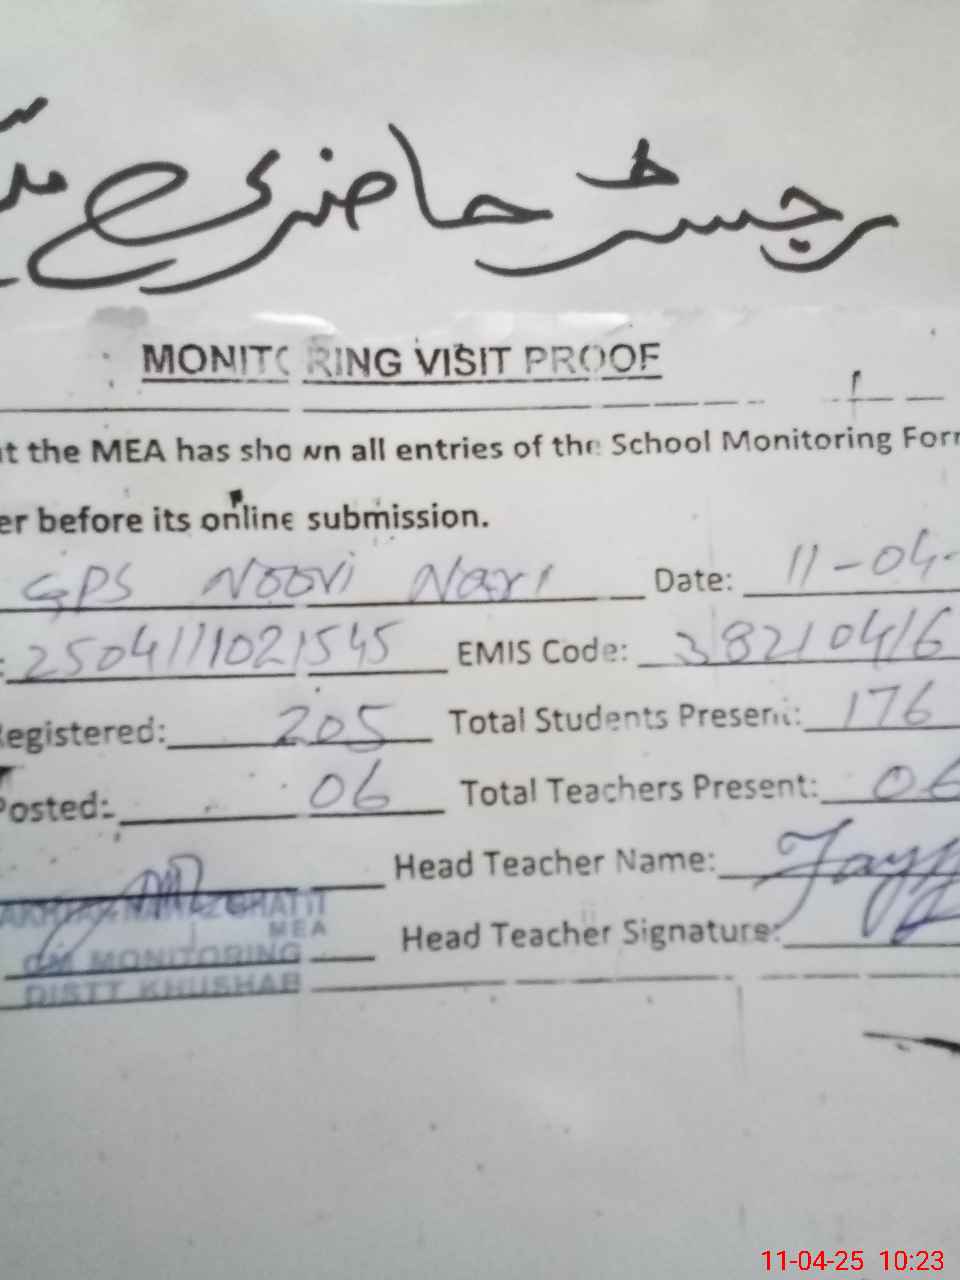 رجسٹر حاضری
MONITORING VISIT PROOF
at the MEA has shown all entries of the School Monitoring Form
er before its online submission.
GPS Noori Nari Date: 11-04-
: 2504111021545 EMIS Code: 38210416
Registered: 205 Total Students Present: 176
Posted: 06 Total Teachers Present: 06
Head Teacher Name:
MEA
Head Teacher Signature:
CM MONITORING
DISTT KHUSHAB
11-04-25 10:23